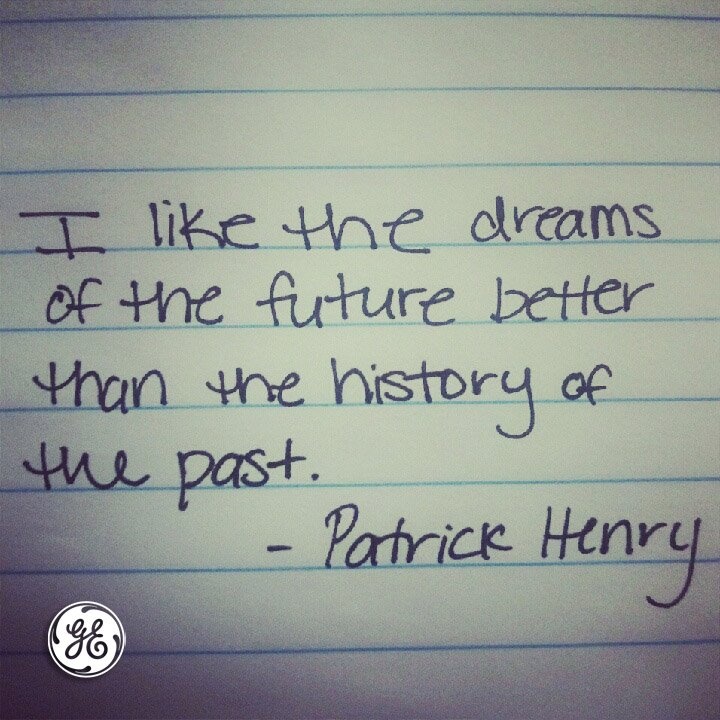 I like the dreams
of the future better
than the history of
the past.
- Patrick Henry
GE